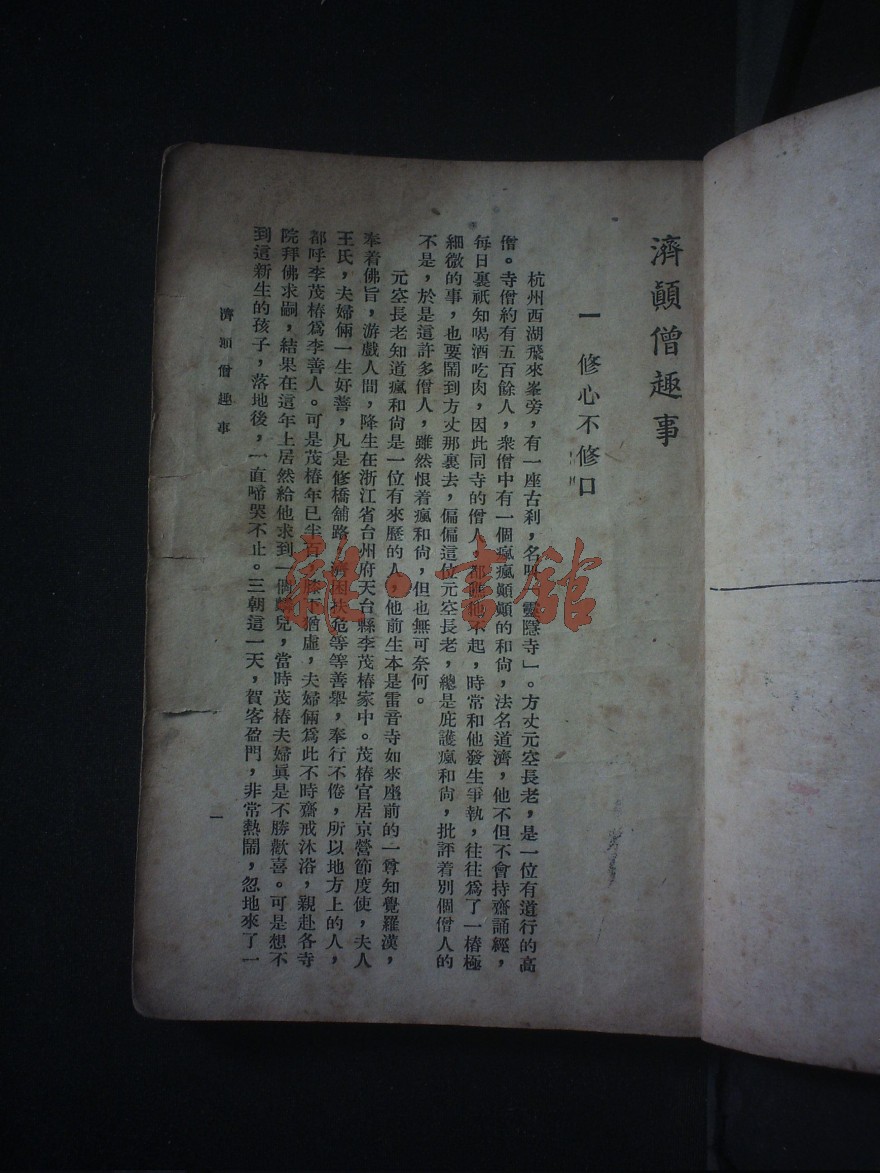 濟顚僧趣事
一　修心不修口
杭州西湖飛來峯旁，有一座古刹，名叫「靈隱寺」。方丈元空長老，是一位有道行的高
僧。寺僧約有五百餘人，衆僧中有一個瘋瘋顚顚的和尙，法名道濟，他不但不會持齋誦經，
每日裏祇知喝酒吃肉，因此同寺的僧人，都瞧他不起，時常和他發生爭執，往往爲了一樁極
細微的事，也要鬧到方丈那裏去，偏偏這位元空長老，總是庇護瘋和尙，批評着別個僧人的
不是，於是這許多僧人，雖然恨着瘋和尙，但也無可奈何。
元空長老知道瘋和尙是一位有來歷的人，他前生本是雷音寺如來座前的一尊知覺羅漢，
奉着佛旨，游戲人間，降生在浙江省台州府天台縣李茂椿家中。茂椿官居京營節度使，夫人
王氏，夫婦倆一生好善，凡是修橋舖路，濟困扶危等等善舉，奉行不倦，所以地方上的人，
都呼李茂椿爲李善人。可是茂椿年已半百，膝下猶虛，夫婦倆爲此不時齋戒沐浴，親赴各寺
院拜佛求嗣，結果在這年上居然給他求到一個麟兒，當時茂椿夫婦眞是不勝歡喜。可是想不
到這新生的孩子，落地後，一直啼哭不止。三朝這一天，賀客盈門，非常熱鬧，忽地來了一
濟顚僧趣事
一
雜·書館